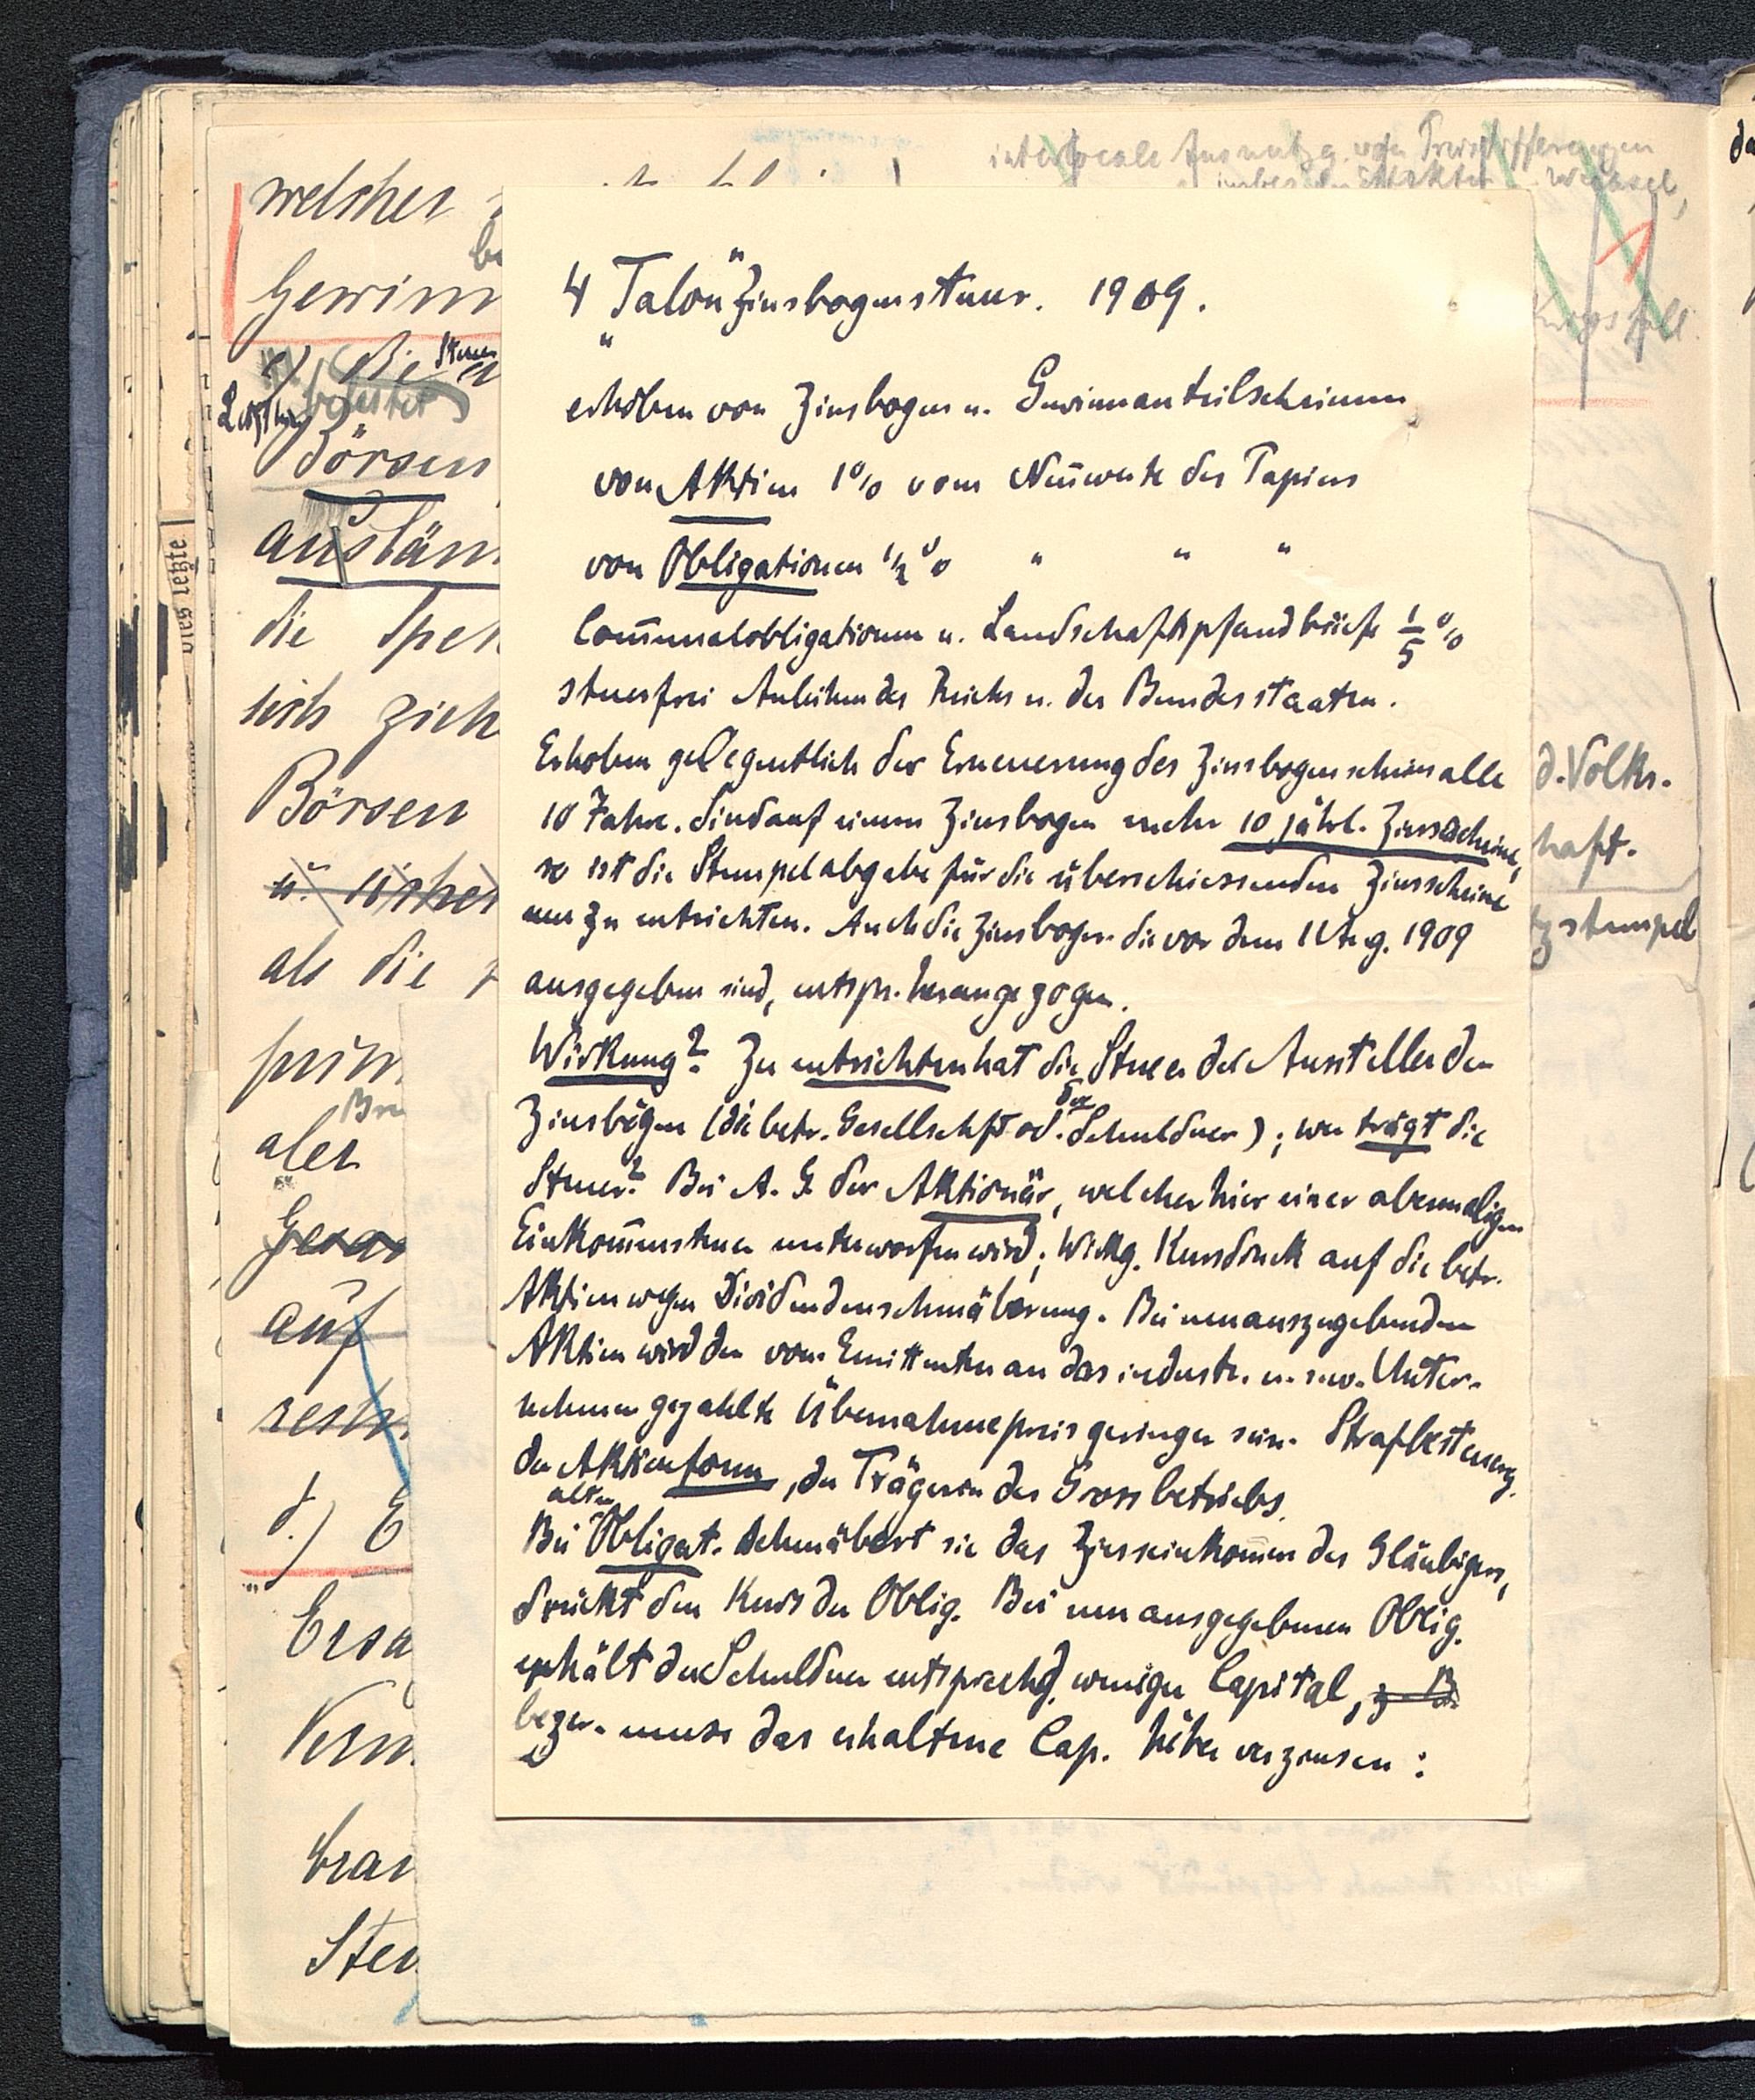 interlocale Ausnutzg. von Preisdifferenzen
welcher
Gewinn
Börsen
auslän
die Spec
sich zieh
Börsen
als die
prin
aber
auf
d.) E
Ersa
Vern
bran
Steu
d. Volks.
haft.
stempel
4 „Talon" Zinsbogensteuer. 1909.
erhoben von Zinsbogen u. Gewinnanteilscheinen
von Aktien 1% vom Nennwerte des Papiers
von Obligationen ½% " " "
Communalobligationen u. Landschaftspfandbriefe 1/5 %
steuerfrei Anleihen des Reichs u. der Bundesstaaten.
Erhoben gelegentlich der Erneuerung des Zinsbogenscheins alle
10 Jahre. Sind auf einem Zinsbogen mehr 10 jährl. Zinsscheine,
so ist die Stempelabgabe für die überschiessenden Zinsscheine
nur zu entrichten. Auch die Zinsbogen die vor dem 1 Aug. 1909
ausgegeben sind, entspr. herangezogen.
Wirkung? Zu entrichten hat die Steuer der Aussteller der
Zinsbögen (die betr. Gesellschft. od. der Schuldner); wer trägt die
Steuer? Bei A. G. der Aktionär, welcher hier einer abermaligen
Einkommensteuer unterworfen wird; Wirkg. Kursdruck auf die betr.
Aktien wegen Dividendenschmälerung. Bei neuauszugebenden
Aktien wird der vom Emittenten an das industr. u. s. w. Unter-
nehmen gezahlte Übernahmepreis geringer sein. Strafbesteuerg.
der Aktienform, der Trägerin des Grossbetriebs.
Bei alten Obligat. schmälert sie das Zinseinkommen des Gläubigers,
drückt den Kurs der Oblig. Bei neu ausgegebenen Oblig.
erhält der Schuldner entsprechd. weniger Capital, z. B.
bezw. muss das erhaltene Cap. höher verzinsen: